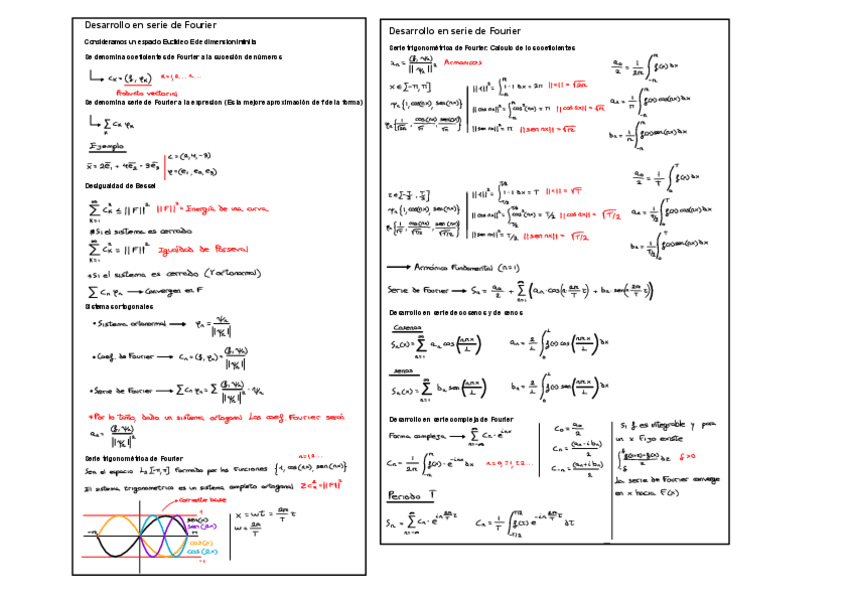 Desarrollo en serie de Fourier
Consideramos un espacio Euclideo E de dimension infinita
Se denomina coeficientes de Fourier a la sucesión de números
cₖ = (f, φₖ) k=1,2... n...
Producto vectorial
Se denomina serie de Fourier a la expresion (Es la mejore aproximación de f de la forma)
∑ cₖ φₖ
Ejemplo
x̄ = 2ē₁ + 4ē₂ - 3ē₃
c = (2, 4, -3)
φ = (e₁, e₂, e₃)
Desigualdad de Bessel
∑ cₖ² ≤ ||F||² ||F||² = Energía de una curva
*Si el sistema es cerrado
∑ cₖ² = ||F||² Igualdad de Parseval
*Si el sistema es cerrado (Y ortonormal)
∑ cₙ φₙ → Convergen en F
Sistema sortogonales
• Sistema ortonormal → φₙ = ψₖ/||ψₖ||
• Coef. de Fourier → cₙ = (f, φₙ) = (f, ψₖ)/||ψₖ||
• Serie de Fourier → ∑ cₙ φₙ = ∑ (f, ψₖ)/||ψₖ||² · ψₖ
*Por lo tanto, dado un sistema ortogonal los coef. Fourier serán
aₙ = (f, ψₖ)/||ψₖ||²
Serie trigonométrica de Fourier
n=1,2...
Sea el espacio L₂[-π, π] formado por las funciones {1, cos(nx), sen(nx)}
El sistema trigonometrico es un sistema completo ortogonal ∑cₙ² = ||F||²
Corriente base
sen(x)
sen(2x)
cos(x)
cos(2x)
x = wt = 2π/T t
w = 2π/T
Desarrollo en serie de Fourier
Serie trigonométrica de Fourier: Calculo de los coeficientes
aₙ = (f, ψₖ)/||ψₖ||² Armonicos
a₀/2 = 1/2π ∫ f(x) dx
x ∈ [-π, π]
ψₙ {1, cos(nx), sen(nx)}
φₙ {1/√2π, cos(nx)/√π, sen(nx)/√π}
||1||² = ∫ 1·1 dx = 2π ||1|| = √2π
||cos nx||² = ∫ cos²(nx) = π ||cos nx|| = √π
||sen nx||² = π ||sen nx|| = √π
aₙ = 1/π ∫ f(x) cos(nx) dx
bₙ = 1/π ∫ f(x) sen(nx) dx
a₀/2 = 1/T ∫ f(x) dx
t ∈ [-T/2, T/2]
ψₙ {1, cos(nx), sen(nx)}
φₙ {1/√T, cos(nx)/√T/2, sen(nx)/√T/2}
||1||² = ∫ 1·1 dx = T ||1|| = √T
||cos nx||² = ∫ cos²(nx) = T/2 ||cos nx|| = √T/2
||sen nx||² = T/2 ||sen nx|| = √T/2
aₙ = 1/T/2 ∫ f(x) cos(nx) dx
bₙ = 1/T/2 ∫ f(x) sen(nx) dx
→ Armónico Fundamental (n=1)
Serie de Fourier → Sₙ = a₀/2 + ∑ (aₙ · cos(n 2π/T t) + bₙ · sen(n 2π/T t))
Desarrollo en serie de cosenos y de senos
Cosenos
Sₙ(x) = ∑ aₙ cos(nπx/L) aₙ = 2/L ∫ f(x) cos(nπx/L) dx
senos
Sₙ(x) = ∑ bₙ sen(nπx/L) bₙ = 2/L ∫ f(x) sen(nπx/L) dx
Desarrollo en serie compleja de Fourier
Forma compleja → ∑ Cₙ · e^inx
Cₙ = 1/2π ∫ f(x) · e^-inx dx n=0,±1,±2...
C₀ = a₀/2
Cₙ = (aₙ - ibₙ)/2
C₋ₙ = (aₙ + ibₙ)/2
Si f es integrable y para
un x fijo existe
δ>0
La serie de Fourier converge
en x hacia F(x)
Periodo T
Sₙ = ∑ Cₙ · e^in 2π/T t Cₙ = 1/T ∫ f(t) e^-in 2π/T t dt